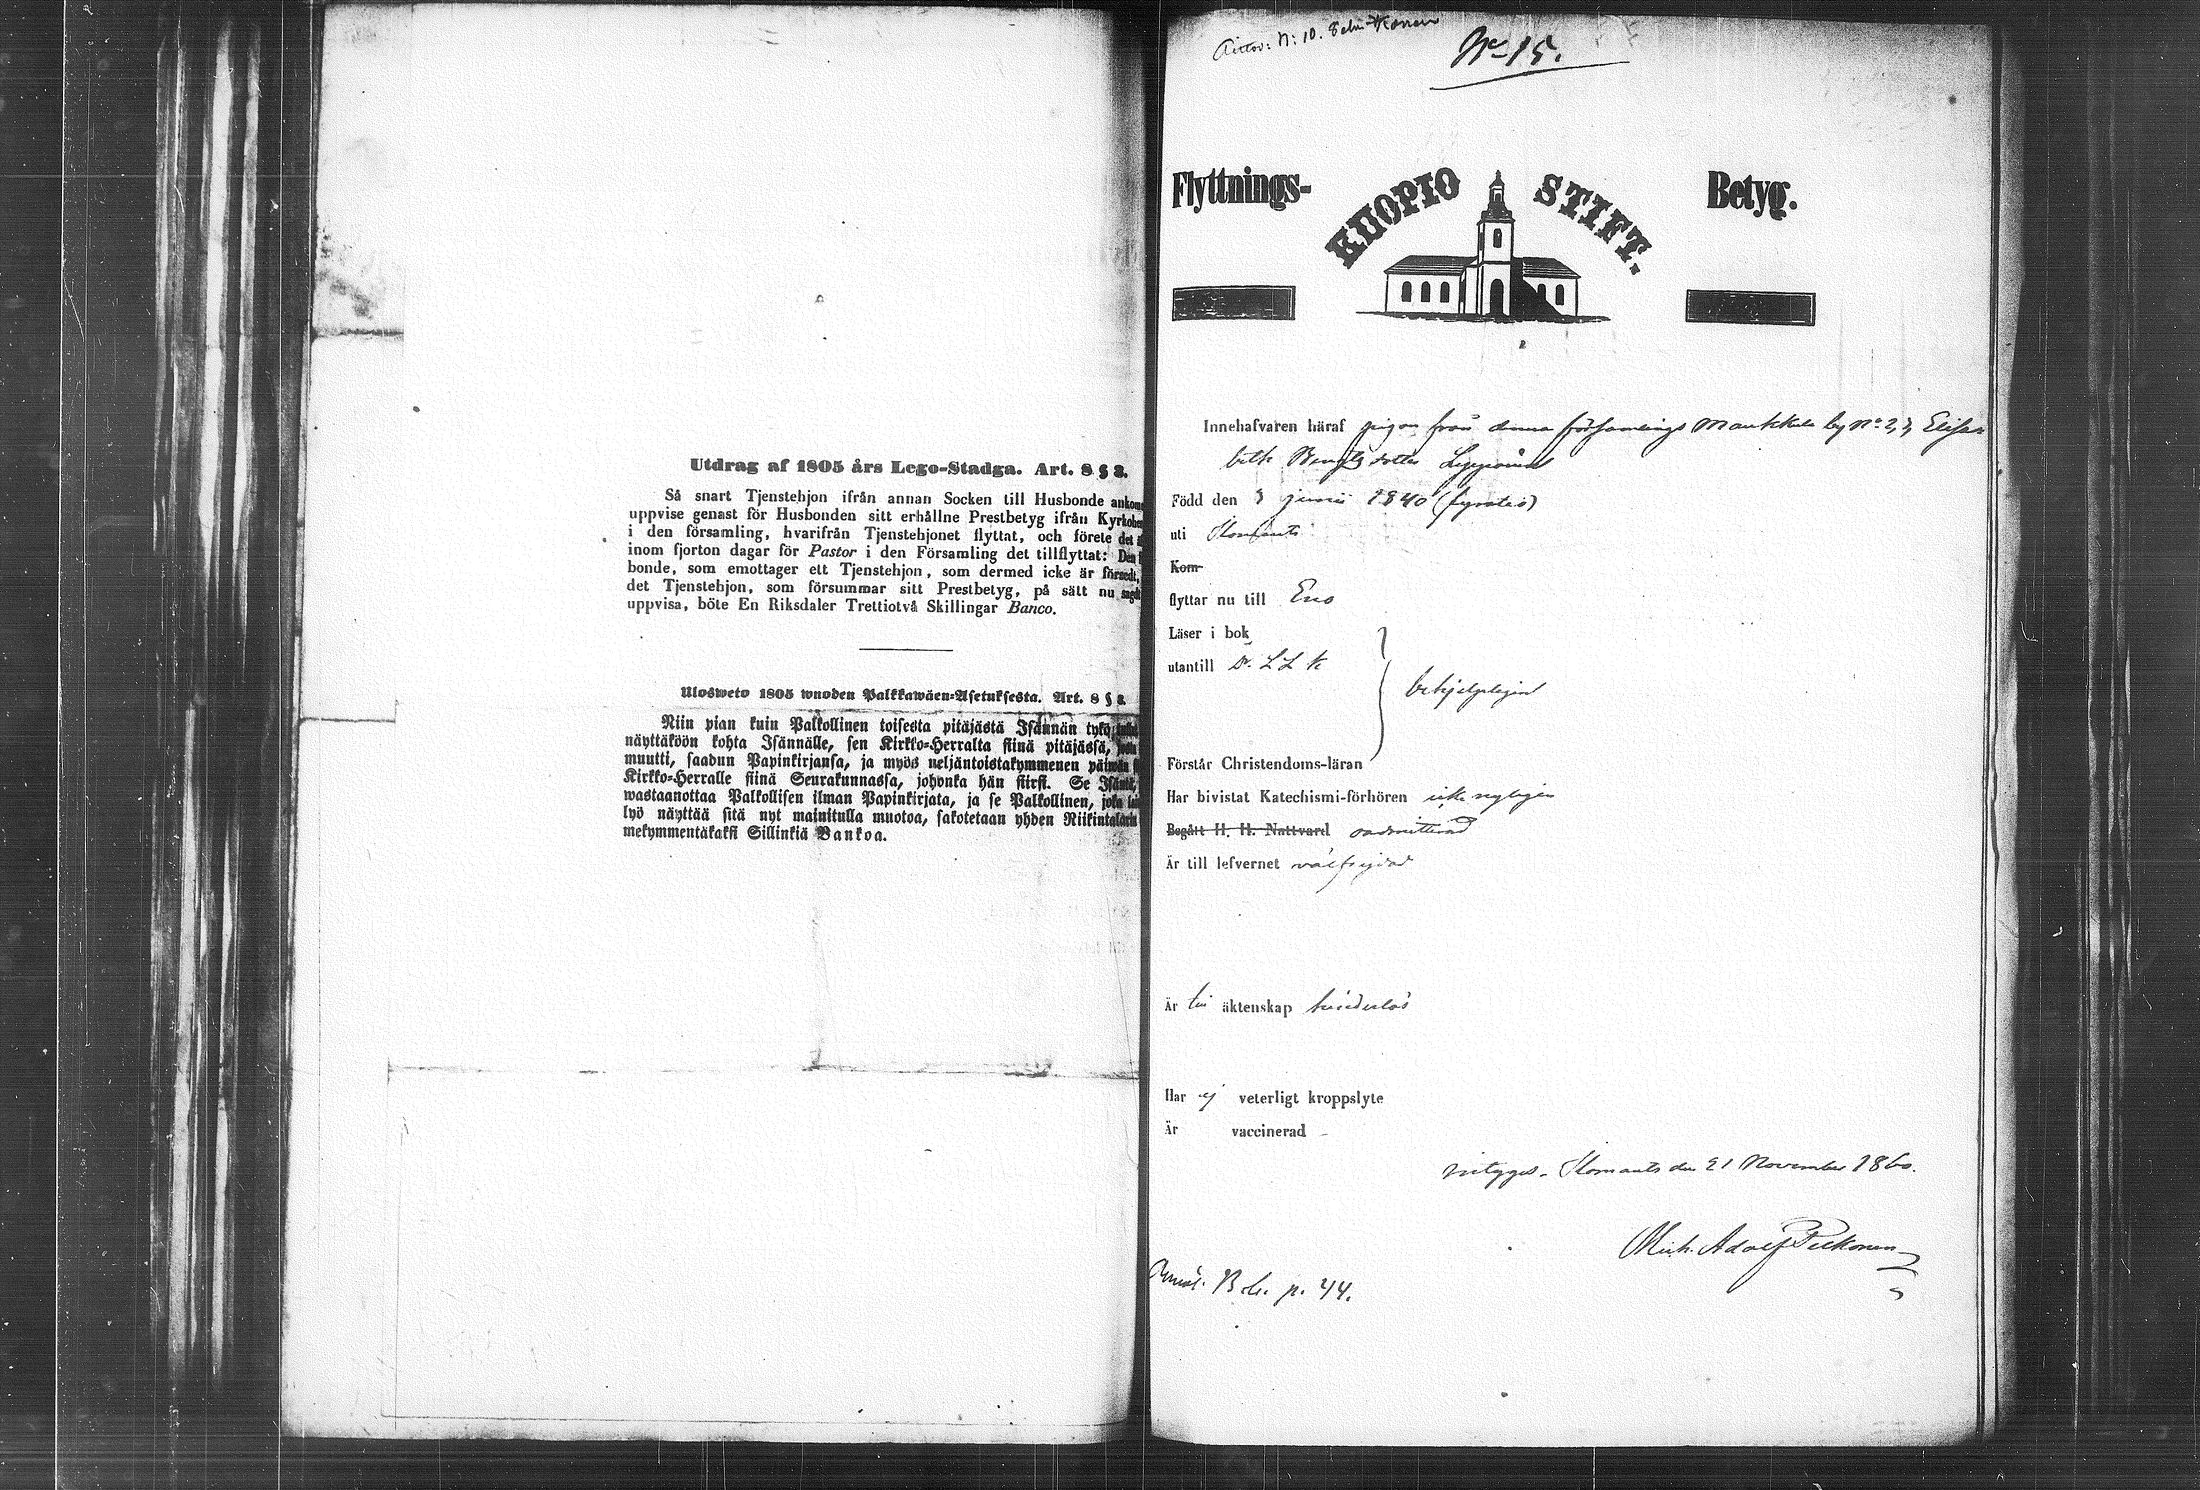 Utdrag af 1805 års Lego-Stadga. Art. 8 § 3.
Så snart Tjenstehjon ifrån annan Socken till Husbonde
uppvise genast för Husbonden sitt erhållne Prestbetyg ifrån
i den församling, hvarifrån Tjenstehjonet flyttat, och förete det
inom fjorton dagar för Pastor i den Församling det tillflyttat: Den
bonde, som emottager ett Tjenstehjon, som dermed icke är försedt,
det Tjenstehjon, som försummar sitt Prestbetyg, på sätt nu
uppvisa, böte En Riksdaler Trettiotvå Skillingar Banco.
Ulosweto 1805 wuoden Palkkawäen-Asetuksesta. Art. 8 § 3.
Niin pian kuin Palkollinen toisesta pitäjästä Isännän tykö
näyttäköön kohta Isännälle, sen Kirkko-Herralta siinä pitäjässä,
muutti, saadun Papinkirjansa, ja myös neljäntoistakymmenen päiwän
Kirkko-Herralle siinä Seurakunnassa, johonka hän siirsi. Se
wastaanottaa Palkollisen ilman Papinkirjata, ja se Palkollinen, joka
lyö näyttää sitä nyt mainitulla muotoa, sakotetaan yhden
mekymmentäkaksi Sillinkiä Bankoa.
N:o 15.
Flyttnings- KUOPIO STIFT. Betyg.
Innehafvaren häraf pigan från denna församlings Maukkula by N:o 23, Elisa-
beth Bengtsdotter
Född den 3 junii 1840 (fyratio)
uti Ilomants
Kom
flyttar nu till Eno
Läser i bok
utantill
Förstår Christendoms-läran
Har bivistat Katechismi-förhören icke
Begått H. H. Nattvard oadmitterad
Är till lefvernet välfrejdad
Är till äktenskap hinderlös
Har ej veterligt kroppslyte
Är vaccinerad
intygas. Ilomants den 21 November 1860.
Mich. Adolf Pelkonen
p. 44.